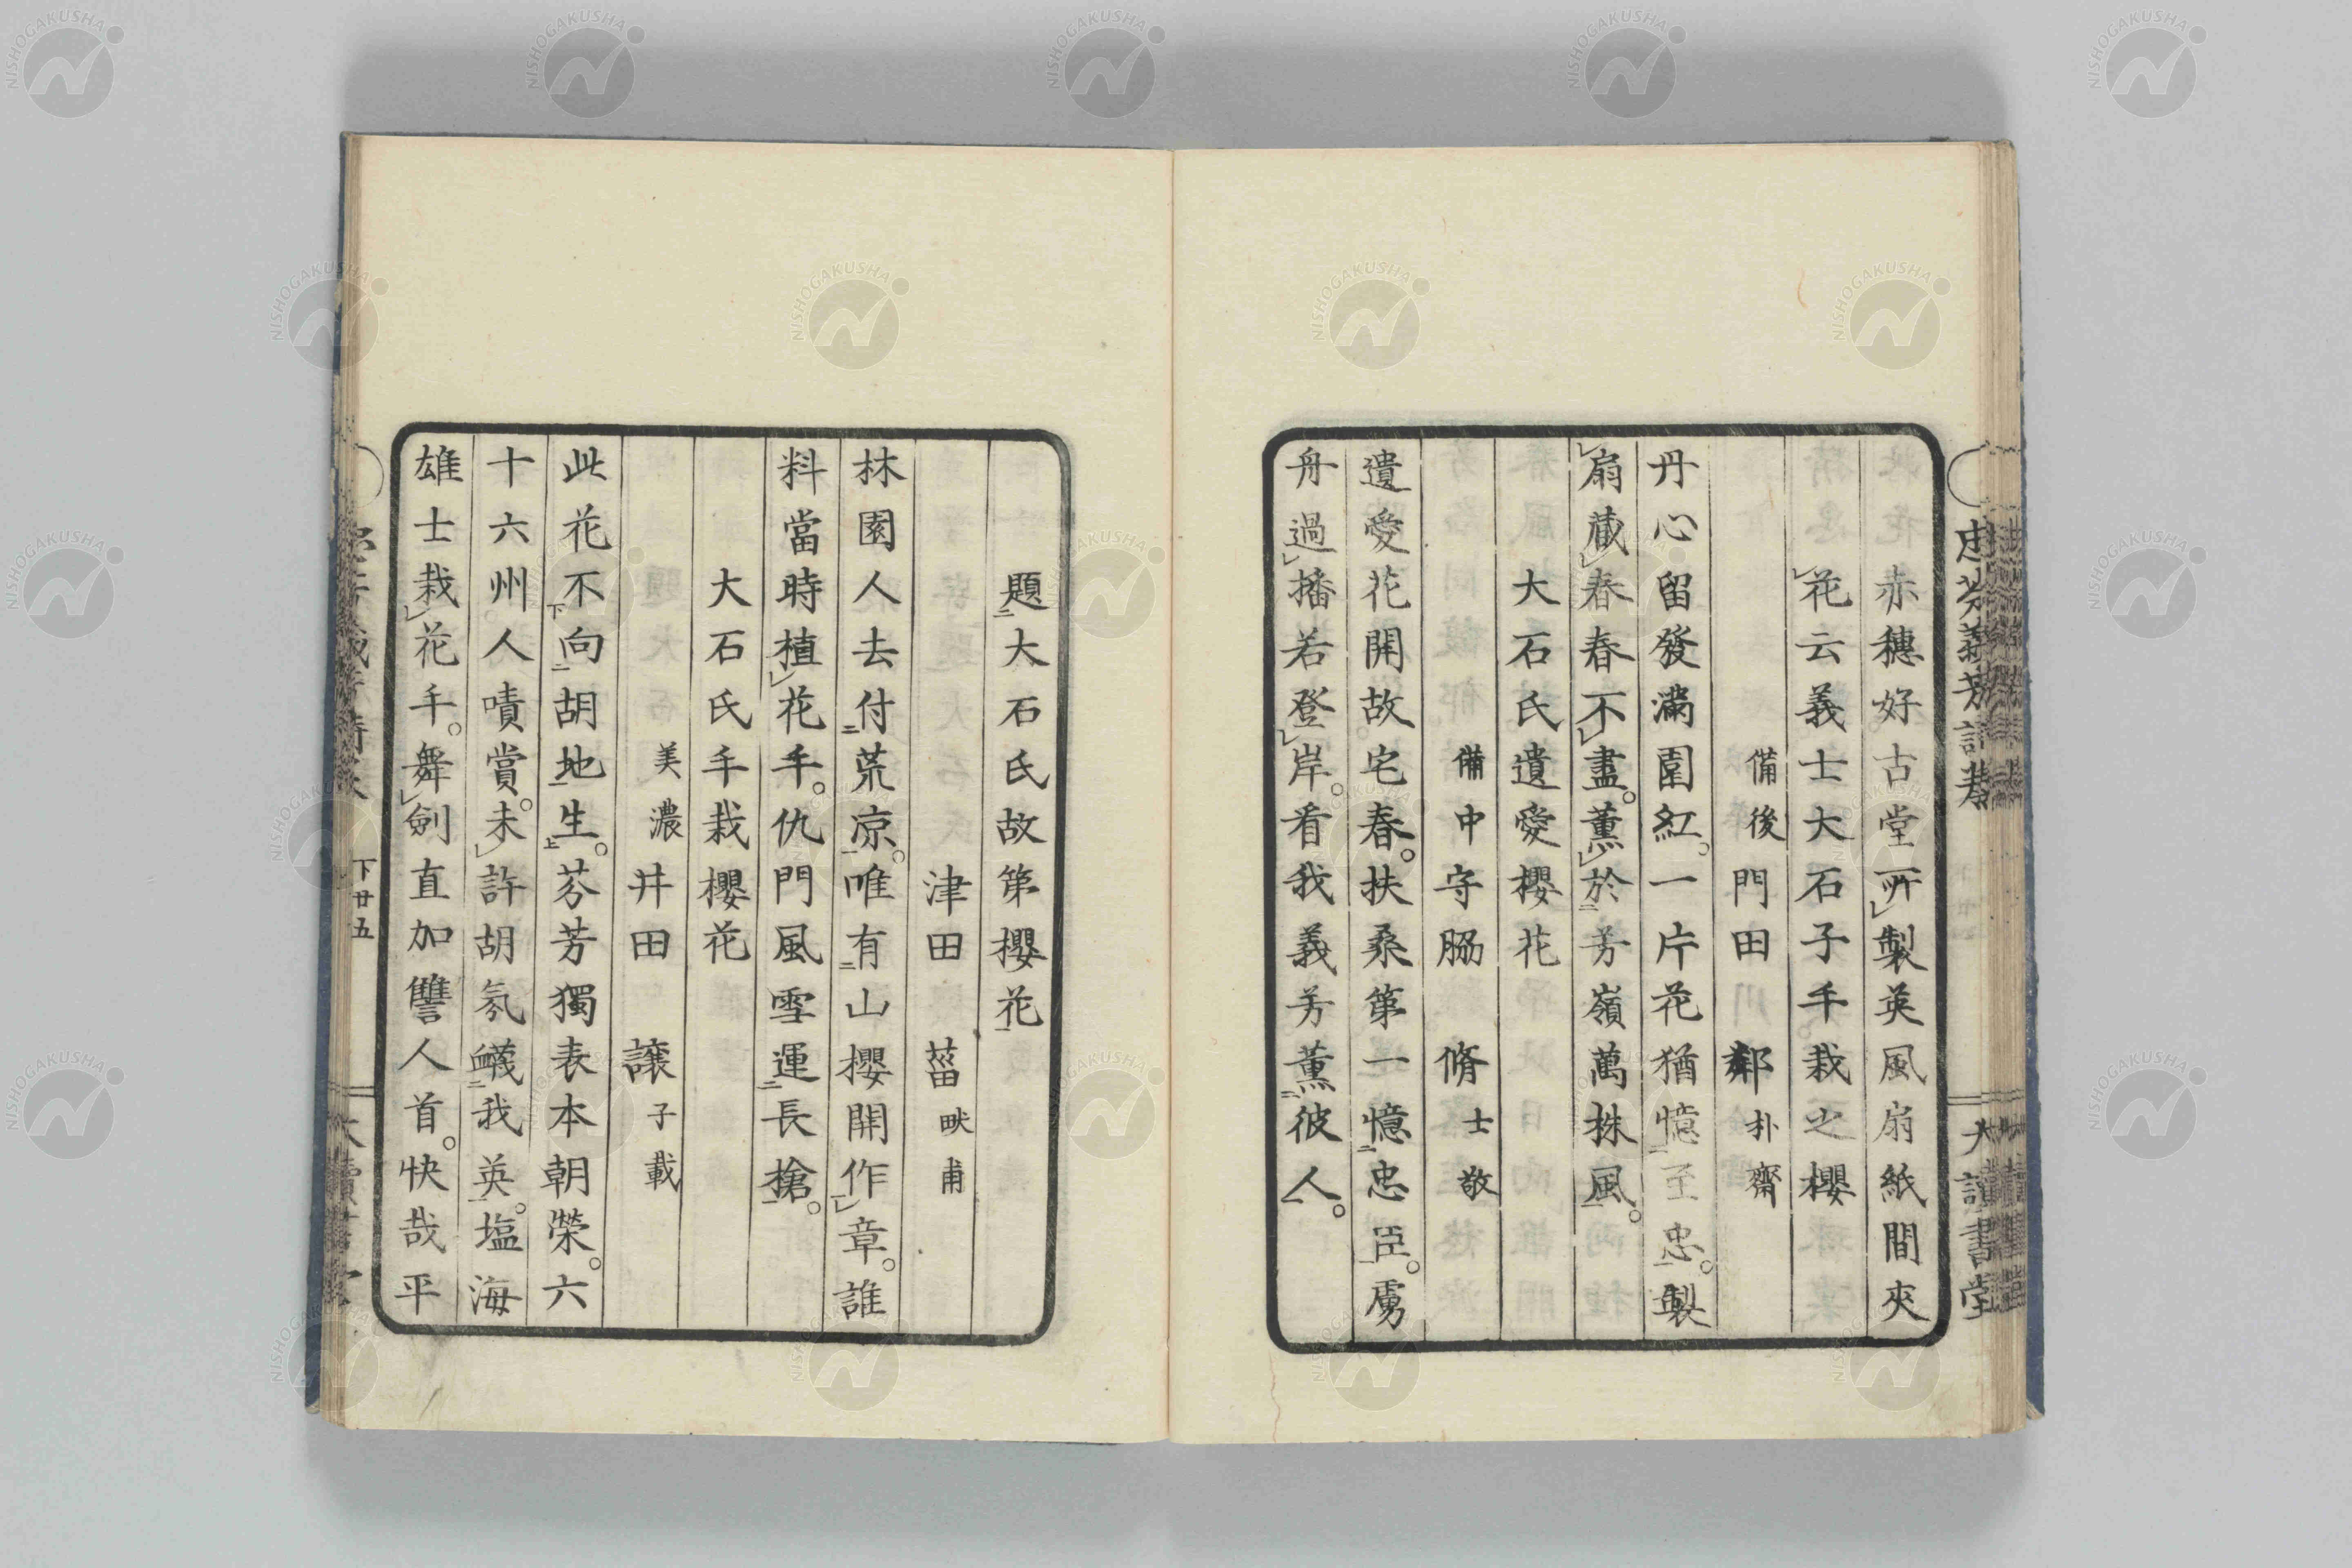 赤穗好古堂所製英風扇紙間夾
花云義士大石子手栽之櫻
備後門田鄰朴齋
丹心留發滿園紅。一片花猶憶至忠。製
扇藏春春不盡。薰於芳嶺萬株風。
大石氏遺愛櫻花
備中守脇脩士敬
遺愛花開故宅春。扶桑第一憶忠臣。虜
舟過播若登岸。看我義芳薰彼人。
大讀書堂
題大石氏故第櫻花
津田葘畎甫
林園人去付荒凉。唯有山櫻開作章。誰
料當時植花手。仇門風雪運長搶。
大石氏手栽櫻花
美濃井田讓子載
此花不向胡地生。芬芳獨表本朝榮。六
十六州人嘖賞。未許胡氛衊我英。塩海
雄士栽花手。舞劍直加讐人首。快哉平
下廿五
NISHOGAKUSHA